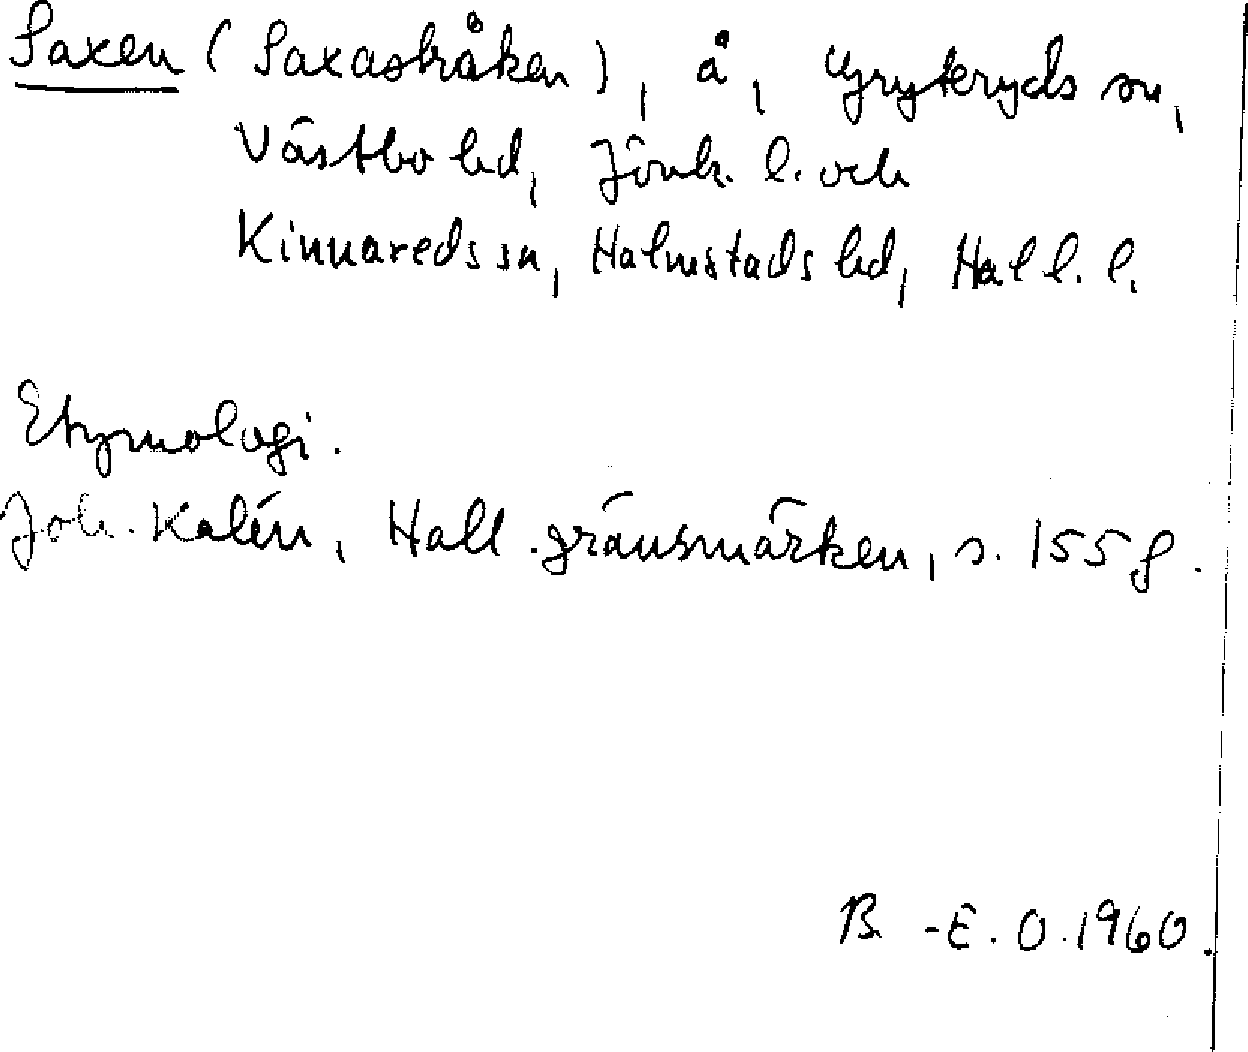 Saxen (Saxastråken), å, Gryteryds sn,
Västbo hd, Jönk. l. och
Kinnareds sn, Halmstads hd, Hall. l.
Etymologi.
Joh. Kalén, Hall. gränsmärken, s. 155 f.
B.-E. O. 1960.